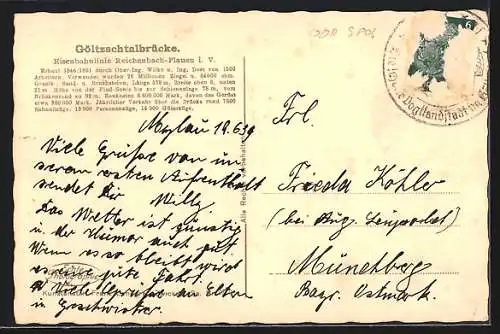 Göltzschtalbrücke.
Eisenbahnlinie Reichenbach-Plauen i. V.
Erbaut 1846/1851 durch Ober-Ing. Wilke u. Ing. Dost von 1500
Arbeitern. Verwendet wurden 26 Millionen Ziegel u.
Granit-, Sand- u. Bruchstein, Länge 578 m, Breite oben 8, unten
23 m. Höhe von der Fluß-Sohle bis zur Schienenlage 78 m, vom
6 600 000 Mark, davon das Gerüst
etwa 900 000 Mark. Jährlicher Verkehr über die Brücke rund 7500
Eilzüge, 13 000 Personenzüge, 15 000 Güterzüge.
Mylau 19.6.39
Viele Grüße von un
serem ersten Aufenthalt
sendet Dir Willy
Das Wetter ist günstig
u. der Humor auch gut
Wenn es so bleibt wird
es eine gute Fahrt.
Viele Grüße an Eltern
u. Geschwister.
Alle Rechte vorbehalten
Frl.
Frieda Köhler
(bei Aug.
Münchberg
Bayr. Ostmark.
6
Vogtlandstadt